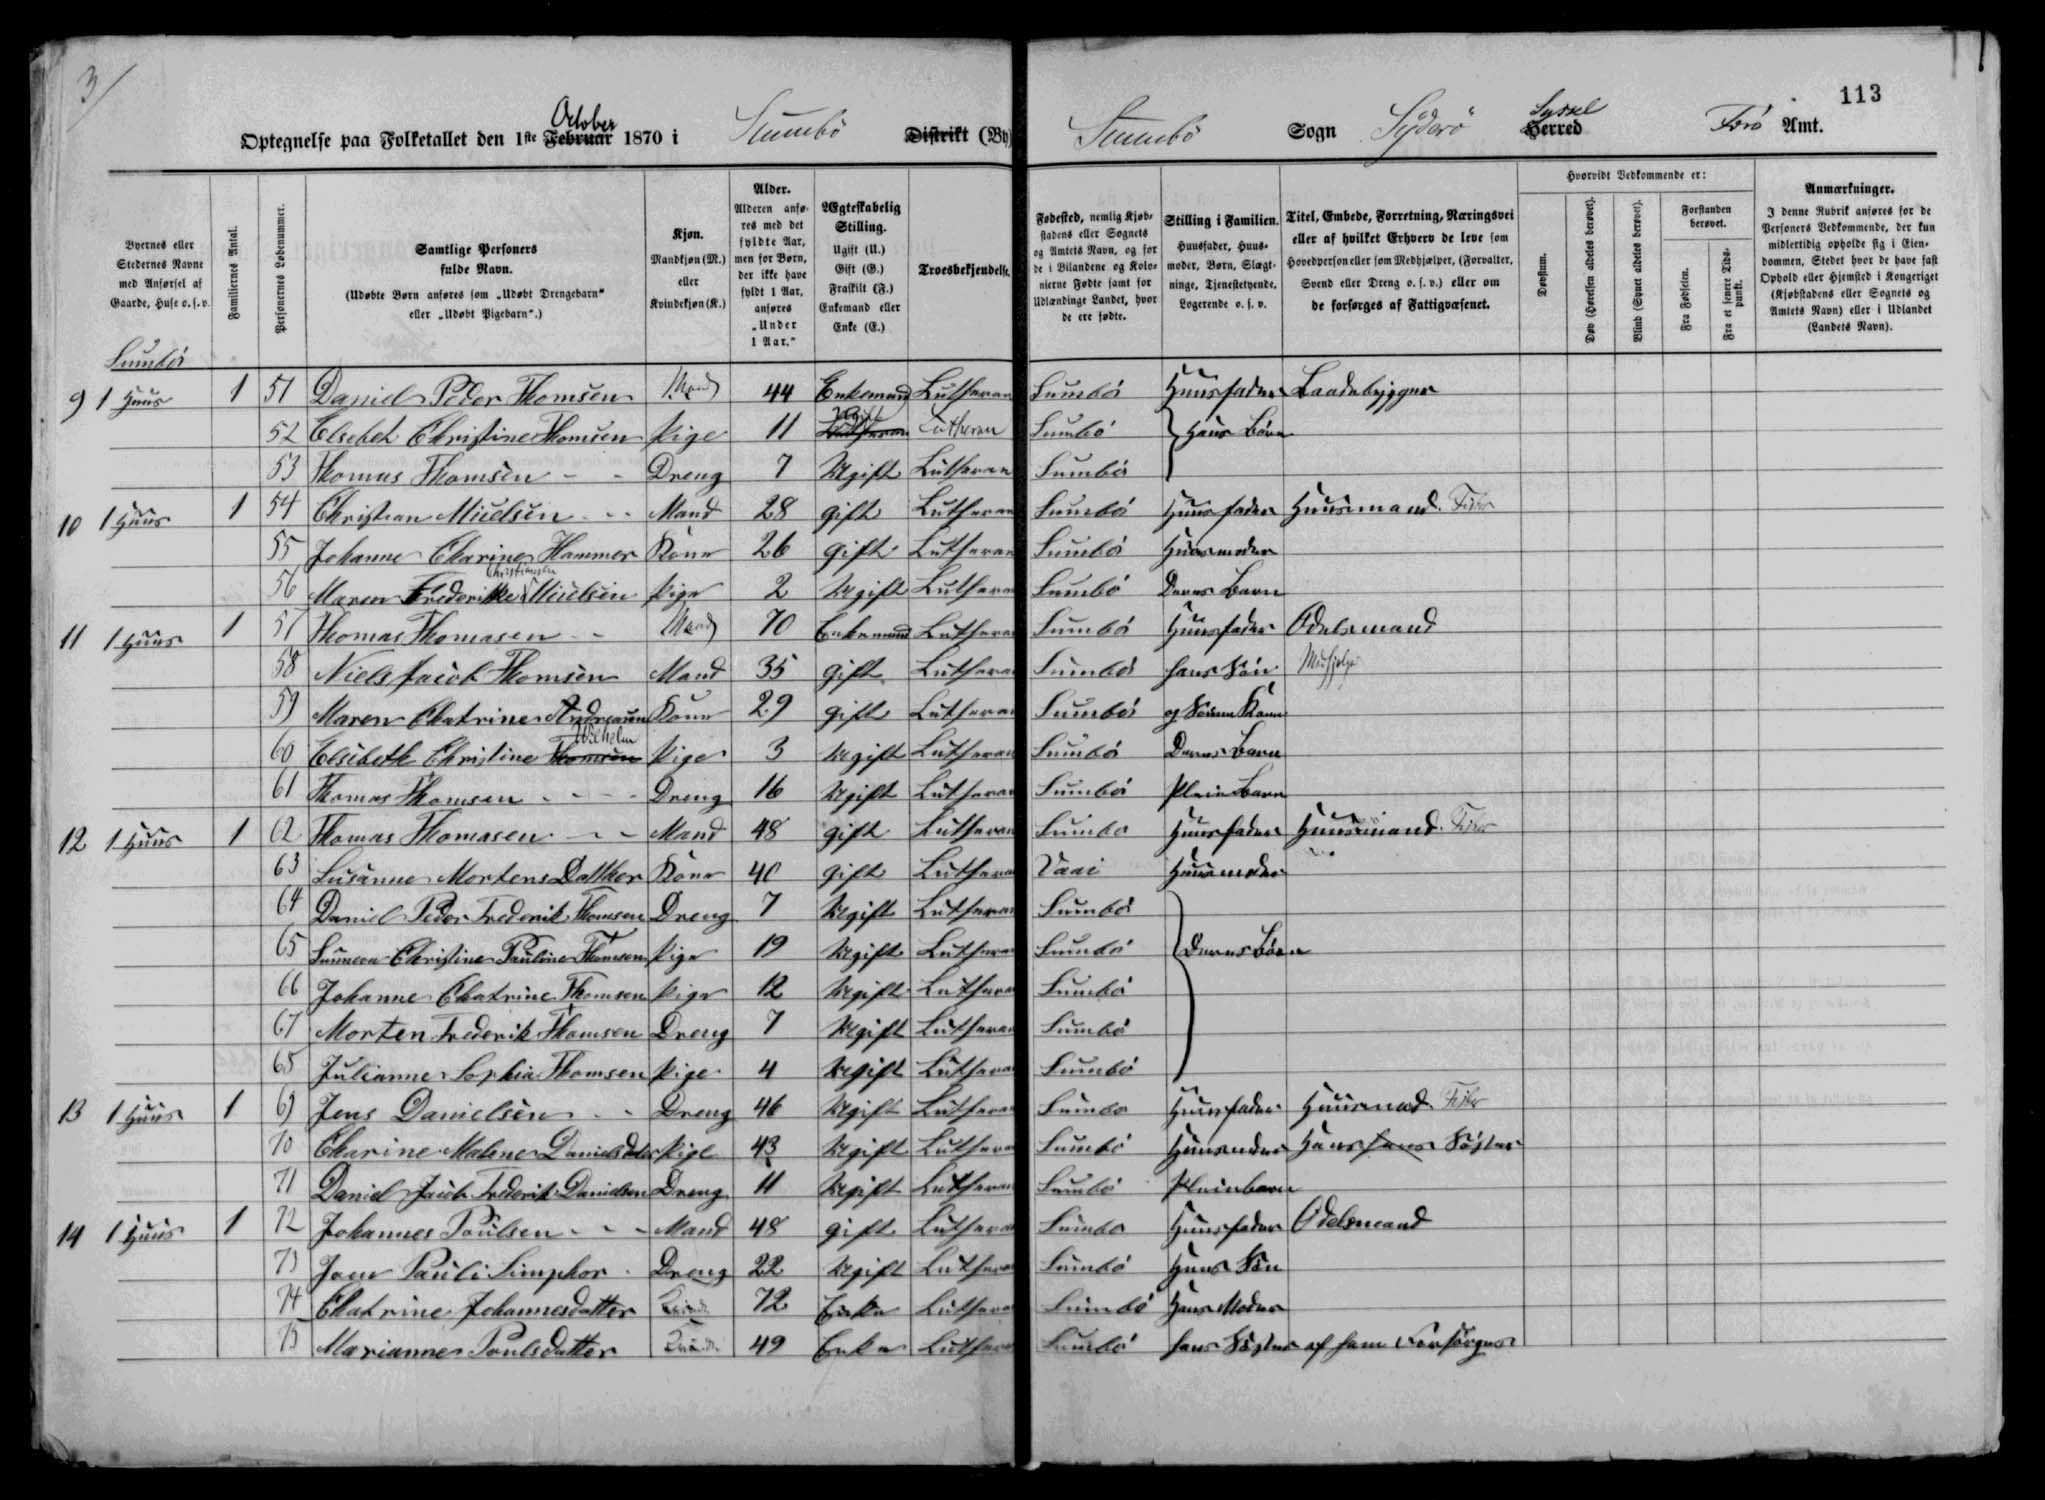 3/
113
Optegnelse paa Folketallet den 1ste Februar October 1870 i Sumbö Distrikt (By)
Sumbö Sogn Syderö Herred Syssel Færö Amt.
Byernes eller Stedernes Navne med Anførsel af Gaarde, Huse o. s. v.
Familiernes Antal.
Personernes Løbenummer.
Samtlige Personers fulde Navn.
(Udøbte Børn anføres som „Udøbt Drengebarn“ eller „Udøbt Pigebarn“.)
Kjøn.
Mandkjøn (M.) eller Kvindekjøn (K.).
Alder.
Alderen anføres med det fyldte Aar, men for Børn, der ikke have fyldt 1 Aar, anføres „Under 1 Aar.“
Ægteskabelig Stilling.
Ugift (U.)
Gift (G.)
Fraskilt (F.)
Enkemand eller Enke (E.)
Troesbekjendelse.
Fødested, nemlig Kjøbstadens eller Sognets og Amtets Navn, og for de i Bilandene og Kolonierne Fødte samt for Udlændinge Landet, hvor de ere fødte.
Stilling i Familien.
Huusfader, Huusmoder, Børn, Slægtninge, Tjenestetyende, Logerende o. s. v.
Titel, Embede, Forretning, Næringsvei eller af hvilket Erhverv de leve som Hovedperson eller som Medhjælper, (Forvalter, Svend eller Dreng o. s. v.) eller om de forsørges af Fattigvæsenet.
Hvorvidt Vedkommende er:
Døvstum.
Døv (Hørelsen aldeles berøvet).
Blind (Synet aldeles berøvet).
Forstanden berøvet.
Fra Fødselen.
Fra et senere Tidspunkt.
Anmærkninger.
I denne Rubrik anføres for de Personers Vedkommende, der kun midlertidig opholde sig i Eiendommen, Stedet hvor de have fast Ophold eller Hjemsted i Kongeriget (Kjøbstadens eller Sognets og Amtets Navn) eller i Udlandet (Landets Navn).
Sumbö
9 1 Huus 1 51 Daniel Peder Thomsen Mand 44 Enkemand Lutheran Sumbö Huusfader Baadebygger
52 Elsebet Christine Thomsen Pige 11 Lutheran Ugift Lutheran Sumbö Hans Börn
53 Thomas Thomsen - - Dreng 7 Ugift Lutheran Sumbö
10 1 Huus 1 54 Christian Nielsen - - Mand 28 gift Lutheran Sumbö Huusfader Huusmand. Fisker
55 Johanne Chatrine Hammer Kone 26 gift Lutheran Sumbö Huusmoder
56 Maren Frederikke Christiansen Nielsen Pige 2 Ugift Lutheran Sumbö Deres Barn
11 1 Huus 1 57 Thomas Thomasen - Mand 70 Enkemand Lutheran Sumbö Huusfader Odelsmand
58 Niels Jacob Thomsen Mand 35 gift Lutheran Sumbö hans Sön Medhjelper
59 Maren Chatrine Andreasen Kone 29 gift Lutheran Sumbö og Sönnens Kone
60 Elsibeth Christine Thomsen Wilhelm Pige 3 Ugift Lutheran Sumbö Deres Barn
61 Thomas Thomsen - - - Dreng 16 Ugift Lutheran Sumbö Pleie Barn
12 1 Huus 1 62 Thomas Thomasen - - Mand 48 gift Lutheran Sumbo Huusfader Huusmand. Fisker
63 Susanne Mortens Datther Kone 40 gift Lutheran Vaai Huusmoder
64 Daniel Peder Frederik Thomsen Dreng 7 Ugift Lutheran Sumbö
65 Sunneva Christine Pauline Thomsen Pige 19 Ugift Lutheran Sumbö Deres Börn
66 Johanne Chatrine Thomsen Pige 12 Ugift Lutheran Sumbö
67 Morten Frederik Thomsen Dreng 7 Ugift Lutheran Sumbö
68 Julianne Sophia Thomsen Pige 4 Ugift Lutheran Sumbö
13 1 Huus 1 69 Jens Danielsen - - Dreng 46 Ugift Lutheran Sumbo Huusfader Huusmand Fisker
70 Charine Malene Danielsdatter Pige 43 Ugift Lutheran Sumbö Huusmoder Hans hans Söster
71 Daniel Jacob Frederik Danielsen Dreng 11 Ugift Lutheran Sumbö Pleiebarn
14 1 Huus 1 72 Johannes Poulsen - - - Mand 48 gift Lutheran Sumbo Huusfader Odelsmand
73 Joen Pauli Simphor Dreng 22 Ugift Lutheran Sumbö Hans Sön
74 Chatrine Johannesdatter Kvinde 72 Enke Lutheran Sumbö Hans Moder
75 Marianne Poulsdatter Kvinde 49 Enke Lutheran Sumbö hans Söster af ham Forsörges